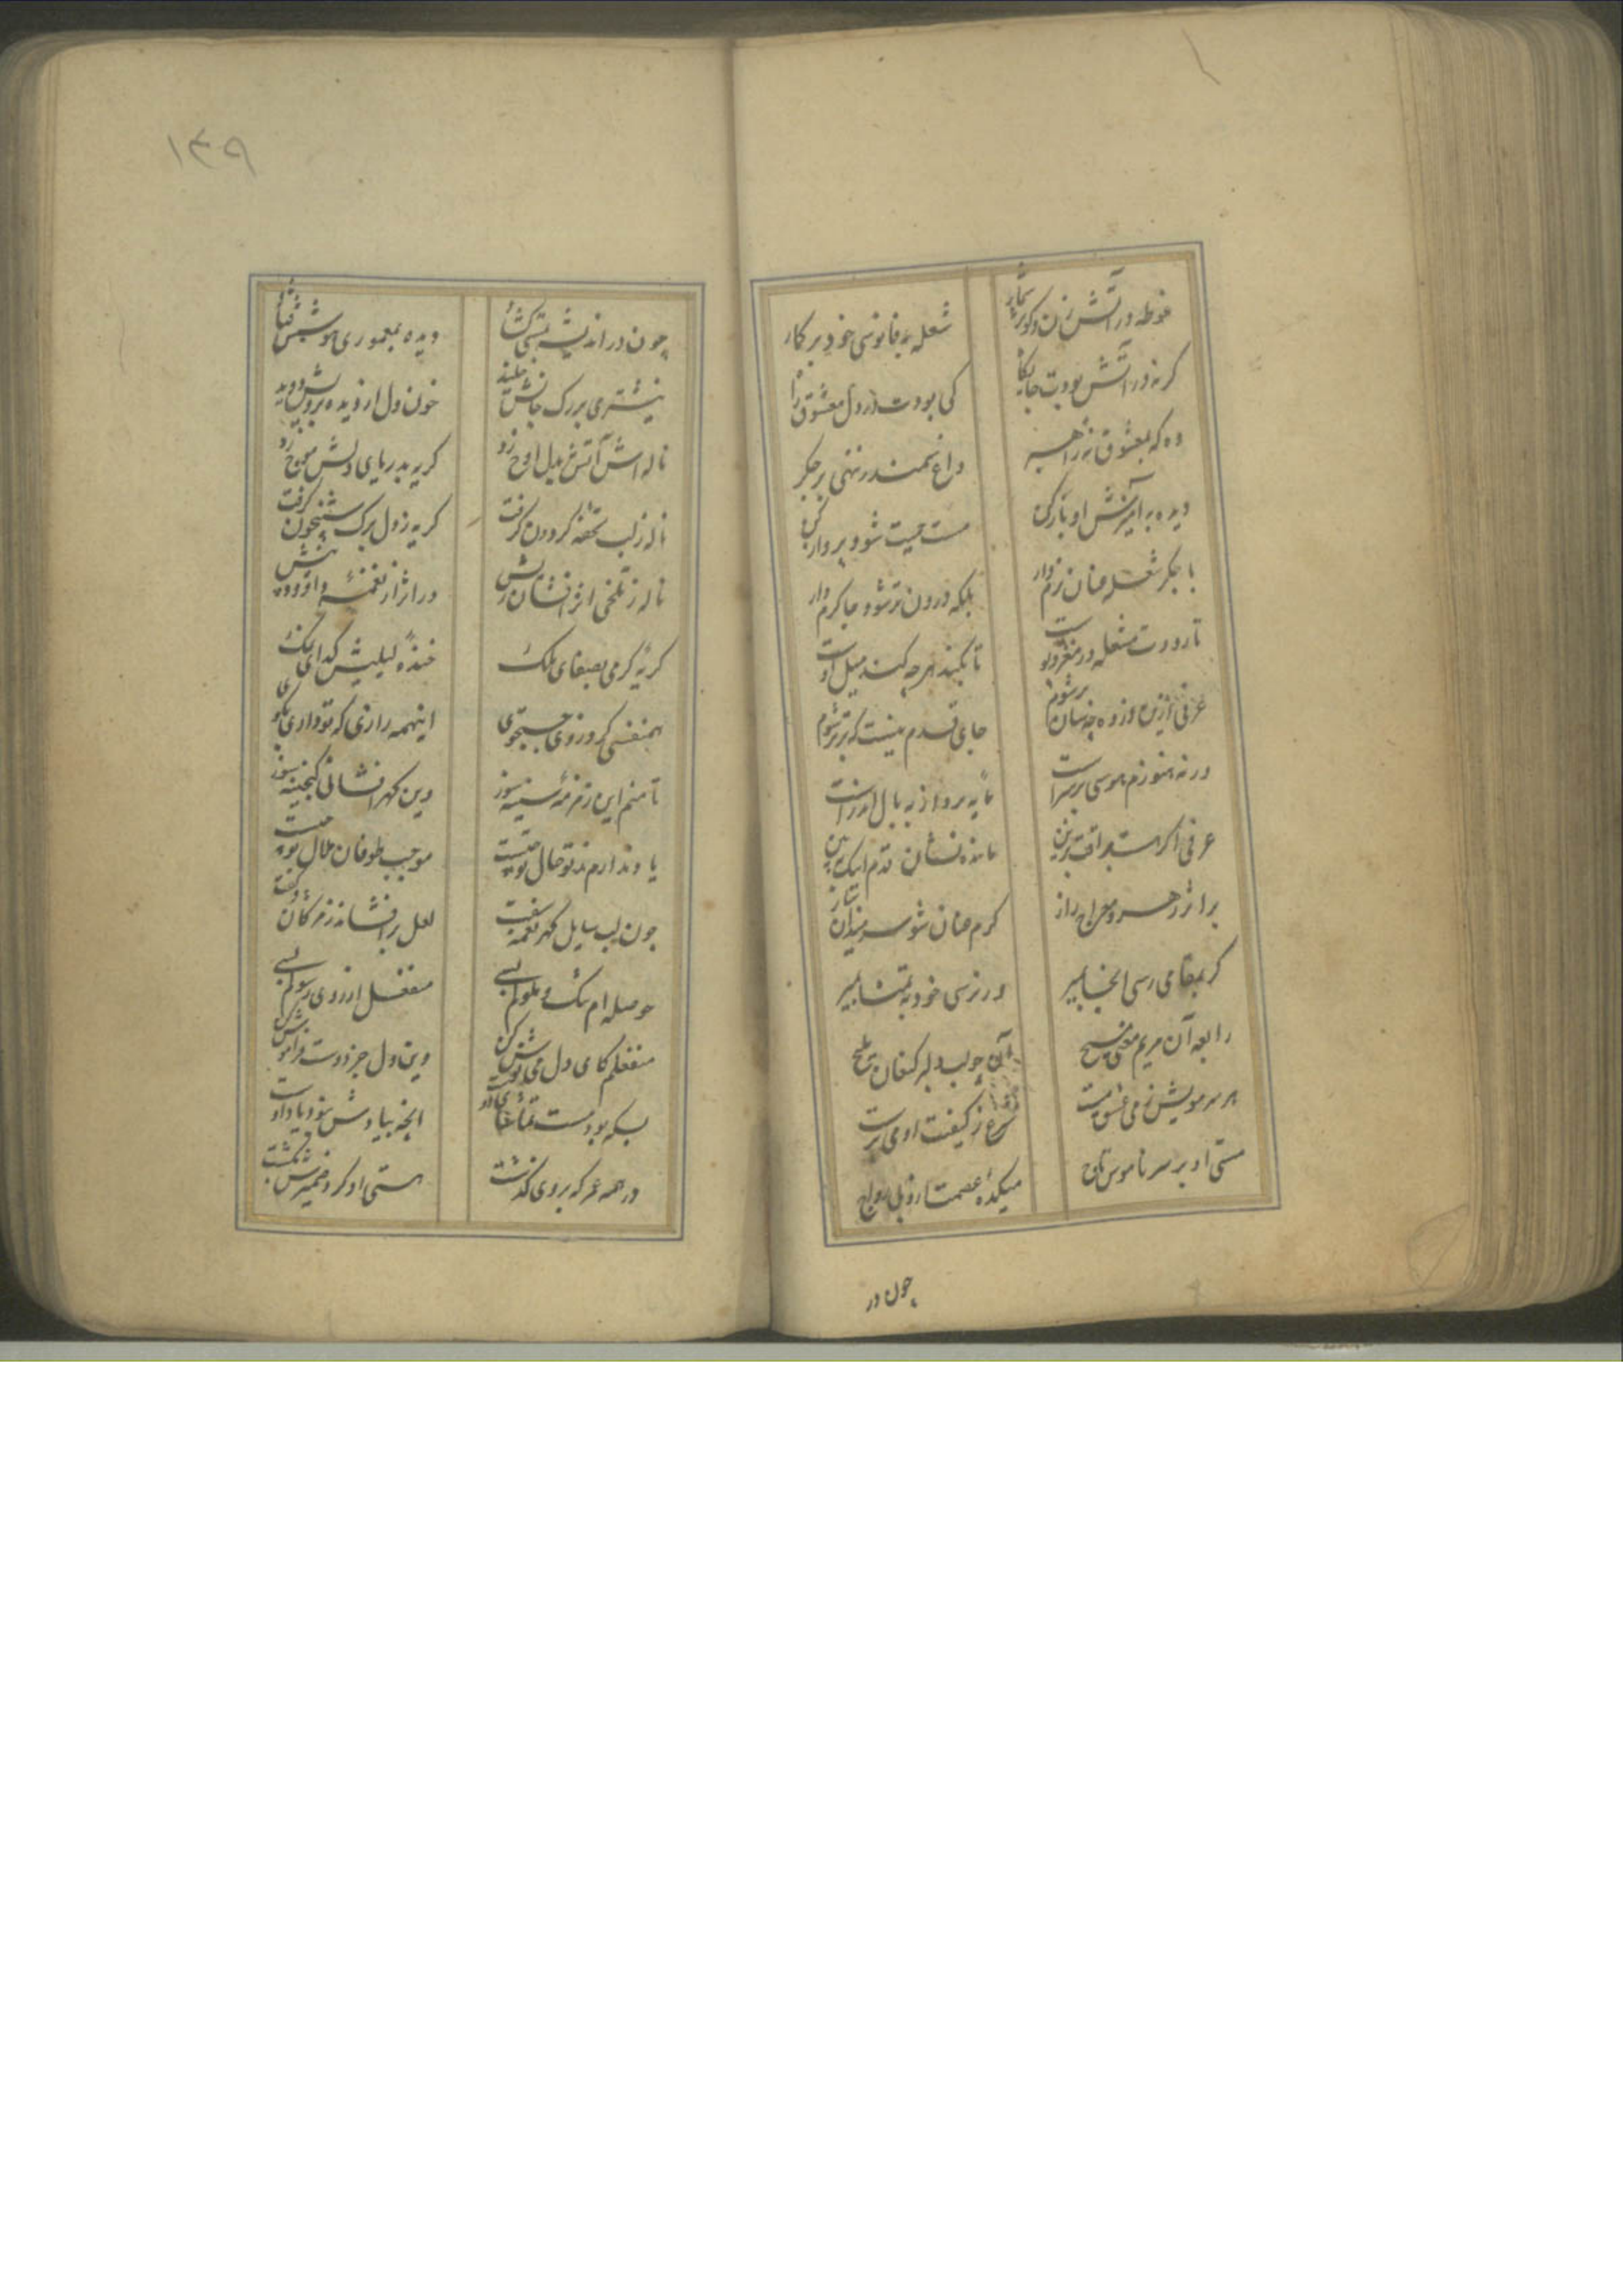 ۱۳۹
غوطه در آتش زن و کوثر شمار
شعله به فانوسی خود بر کمار
گر نه در آتش بودت جایگاه
کی بودت در دل معشوق راه
وه که بمعشوق نه
داغ سمندر ننهی بر جگر
دیده به آمیزش او باز کن
مست محبت شو و پرواز کن
با جگر شعله عنان نرم دار
بلکه درون تر شو و جا گرم دار
تا رودت مشعله در مغز و پوست
تا بکند هر چه کند میل اوست
عرفی ازین دزده چه سان بر شوم
جای قدم نیست که برتر شوم
ورنه هنوزم هوسی بر سر است
مایه پرواز به بال اندر است
عرفی اگر هست
مانده نشان قدم اینک ببین
بر اثر رهرو معراج راز
گرم عنان شو سر میدان بتاز
گر بمقامی رسی آنجا بمیر
ور نرسی خود به تمنا بمیر
رابعه آن مریم معنی مسیح
آن چو لب دلبر کنعان ملیح
هر سر مویش ز می عشق مست
شرع ز کیفیت او می پرست
مستی او بر سر ناموس تاج
میکده عصمت ازو با رواج
چون در
چون در اندیشه بستی گشاد
دیده بمعموری هوشش فتاد
نیشتری بر رگ جانش خلید
خون دل از دیده برویش دوید
ناله اش آتش بدل اوج زد
گریه بدریای دلش موج زد
ناله ز لب تحفه گردون گرفت
گریه ز دل برگ شبیخون گرفت
ناله ز تلخی اثر افشان
در اثر از نغمه داود بیش
گریه گرمی بصفای ملک
خنده لیلیش گدای نمک
همنفسی کرد ز وی جستجوی
اینهمه رازی که تو داری بگوی
تا منم این زمزمه سینه سوز
وین گهر افشانی گنجینه سوز
یاد ندارم ز تو حال تو چیست
موجب طوفان ملال تو چیست
چون لب سایل گهر نغمه سفت
لعل برافشاند ز مژگان و گفت
حوصله ام تنگ و ملولم بسی
منفعل از روی رسولم بسی
منفعلم کای دل می نوش کن
وین دل جز دوست فراموش کن
بسکه بود مست تماشای دوست
آنچه بیادش نبود یاد اوست
در همه عمر که بر وی گذشت
مستی او گرد ضمیرش نگشت